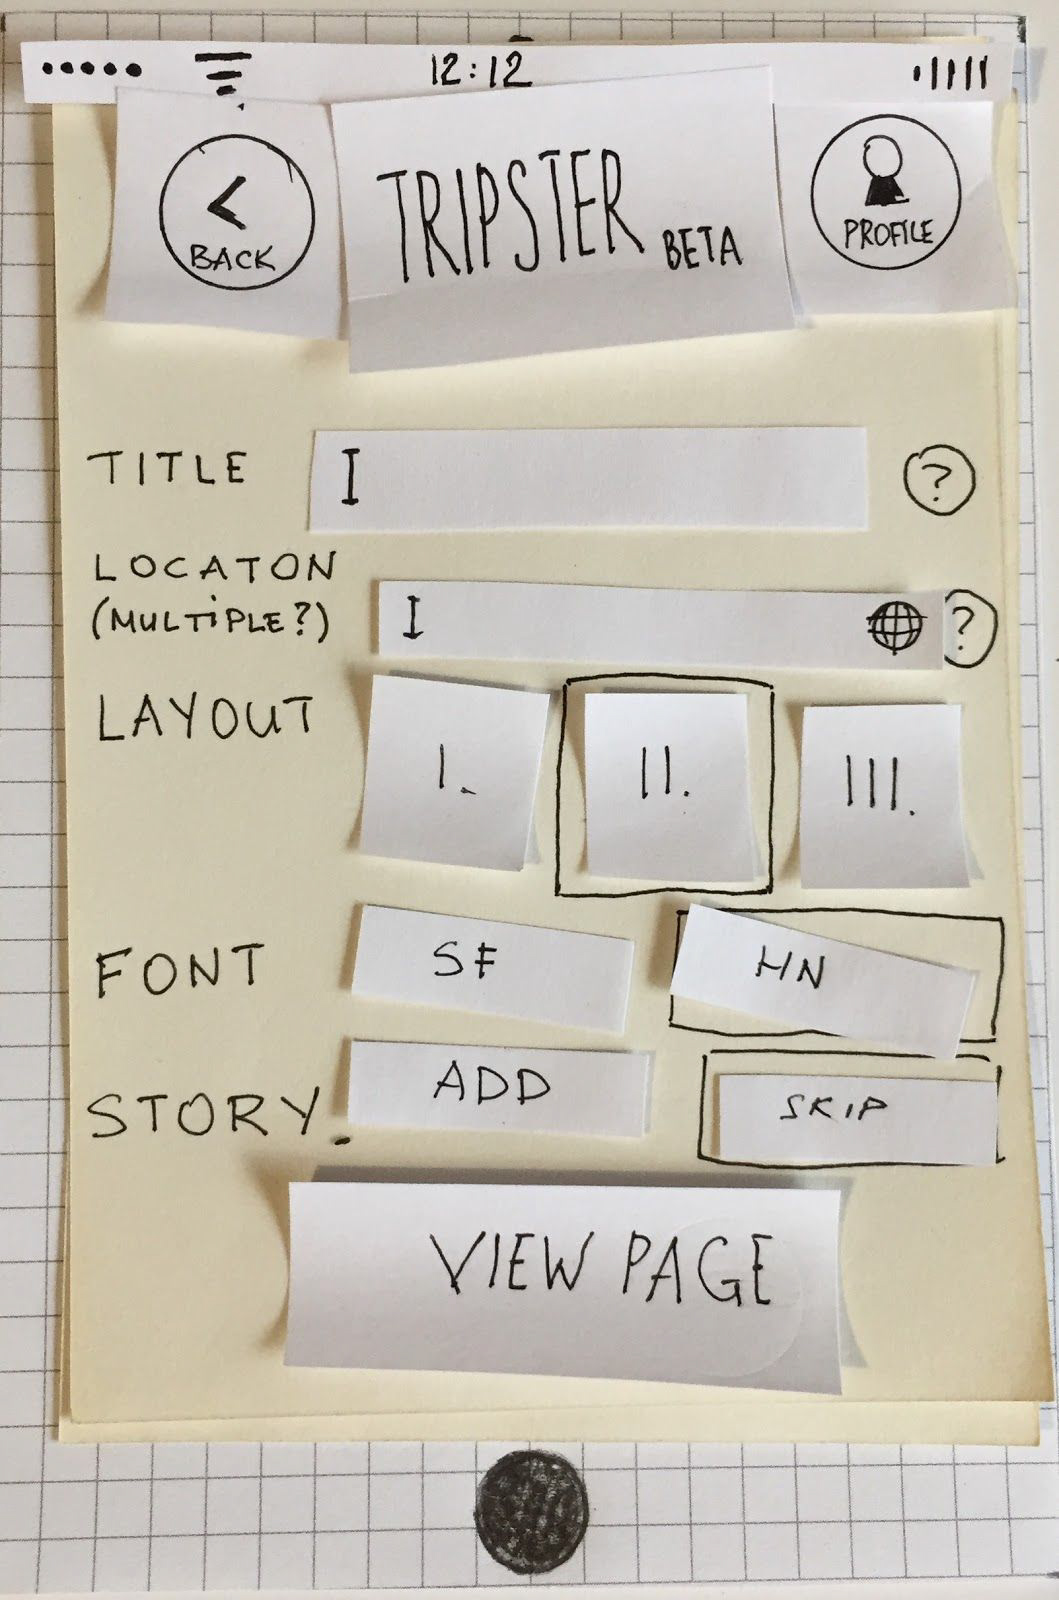 12:12
< BACK
TRIPSTER BETA
PROFILE
TITLE I ?
LOCATON
(MULTIPLE?) I ?
LAYOUT I. II. III.
FONT SF HN
STORY. ADD SKIP
VIEW PAGE